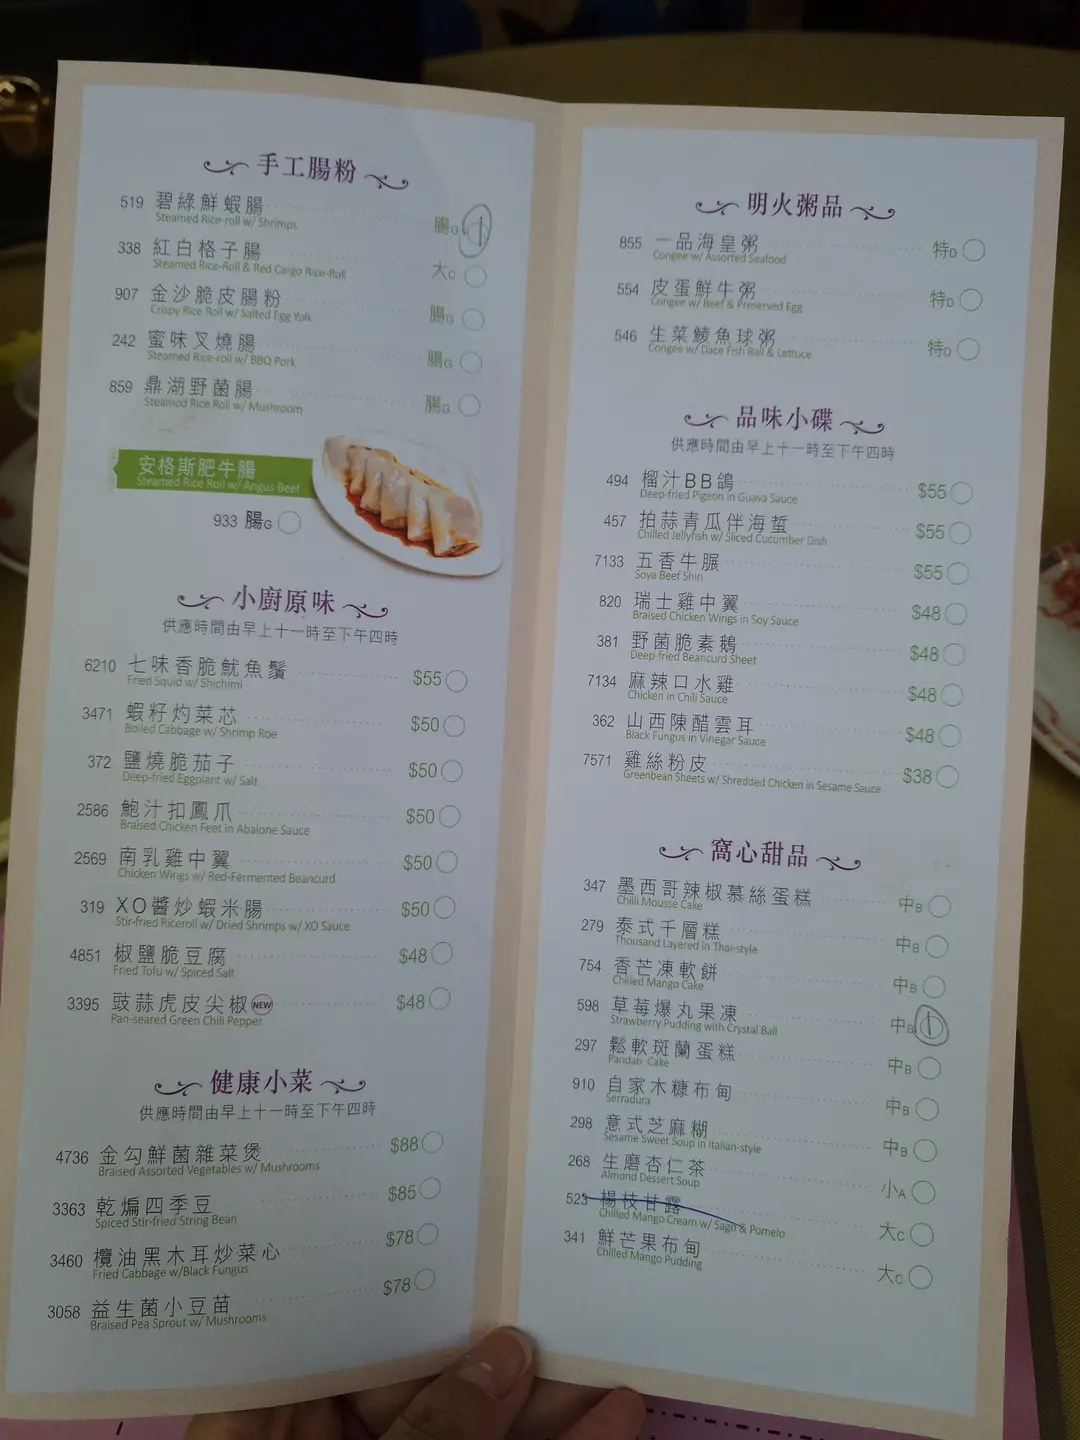 手工腸粉
519 碧綠鮮蝦腸 腸G
Steamed Rice-roll w/ Shrimps
338 紅白格子腸 大C
Steamed Rice-Roll & Red Cargo Rice-Roll
907 金沙脆皮腸粉 腸G
Crispy Rice Roll w/ Salted Egg Yolk
242 蜜味叉燒腸 腸G
Steamed Rice-roll w/ BBQ Pork
859 鼎湖野菌腸 腸G
Steamed Rice Roll w/ Mushroom
安格斯肥牛腸
Steamed Rice Roll w/ Angus Beef
933 腸G
小廚原味
供應時間由早上十一時至下午四時
6210 七味香脆魷魚鬚 $55
Fried Squid w/ Shichimi
3471 蝦籽灼菜芯 $50
Boiled Cabbage w/ Shrimp Roe
372 鹽燒脆茄子 $50
Deep-fried Eggplant w/ Salt
2586 鮑汁扣鳳爪 $50
Braised Chicken Feet in Abalone Sauce
2569 南乳雞中翼 $50
Chicken Wings w/ Red-Fermented Beancurd
319 XO醬炒蝦米腸 $50
Stir-fried Riceroll w/ Dried Shrimps w/ XO Sauce
4851 椒鹽脆豆腐 $48
Fried Tofu w/ Spiced Salt
3395 豉蒜虎皮尖椒 NEW $48
Pan-seared Green Chili Pepper
健康小菜
供應時間由早上十一時至下午四時
4736 金勾鮮菌雜菜煲 $88
Braised Assorted Vegetables w/ Mushrooms
3363 乾煸四季豆 $85
Spiced Stir-fried String Bean
3460 欖油黑木耳炒菜心 $78
Fried Cabbage w/Black Fungus
3058 益生菌小豆苗 $78
Braised Pea Sprout w/ Mushrooms
明火粥品
855 一品海皇粥 特D
Congee w/ Assorted Seafood
554 皮蛋鮮牛粥 特D
Congee w/ Beef & Preserved Egg
546 生菜鯪魚球粥 特D
Congee w/ Dace Fish Ball & Lettuce
品味小碟
供應時間由早上十一時至下午四時
494 榴汁BB鴿 $55
Deep-fried Pigeon in Guava Sauce
457 拍蒜青瓜伴海蜇 $55
Chilled Jellyfish w/ Sliced Cucumber Dish
7133 五香牛𦟌 $55
Soya Beef Shin
820 瑞士雞中翼 $48
Braised Chicken Wings in Soy Sauce
381 野菌脆素鵝 $48
Deep-fried Beancurd Sheet
7134 麻辣口水雞 $48
Chicken in Chili Sauce
362 山西陳醋雲耳 $48
Black Fungus in Vinegar Sauce
7571 雞絲粉皮 $38
Greenbean Sheets w/ Shredded Chicken in Sesame Sauce
窩心甜品
347 墨西哥辣椒慕絲蛋糕 中B
Chilli Mousse Cake
279 泰式千層糕 中B
Thousand Layered in Thai-style
754 香芒凍軟餅 中B
Chilled Mango Cake
598 草莓爆丸果凍 中B
Strawberry Pudding with Crystal Ball
297 鬆軟斑蘭蛋糕 中B
Pandan Cake
910 自家木糠布甸 中B
Serradura
298 意式芝麻糊 中B
Sesame Sweet Soup in Italian-style
268 生磨杏仁茶 小A
Almond Dessert Soup
523 楊枝甘露 大C
Chilled Mango Cream w/ Sago & Pomelo
341 鮮芒果布甸 大C
Chilled Mango Pudding